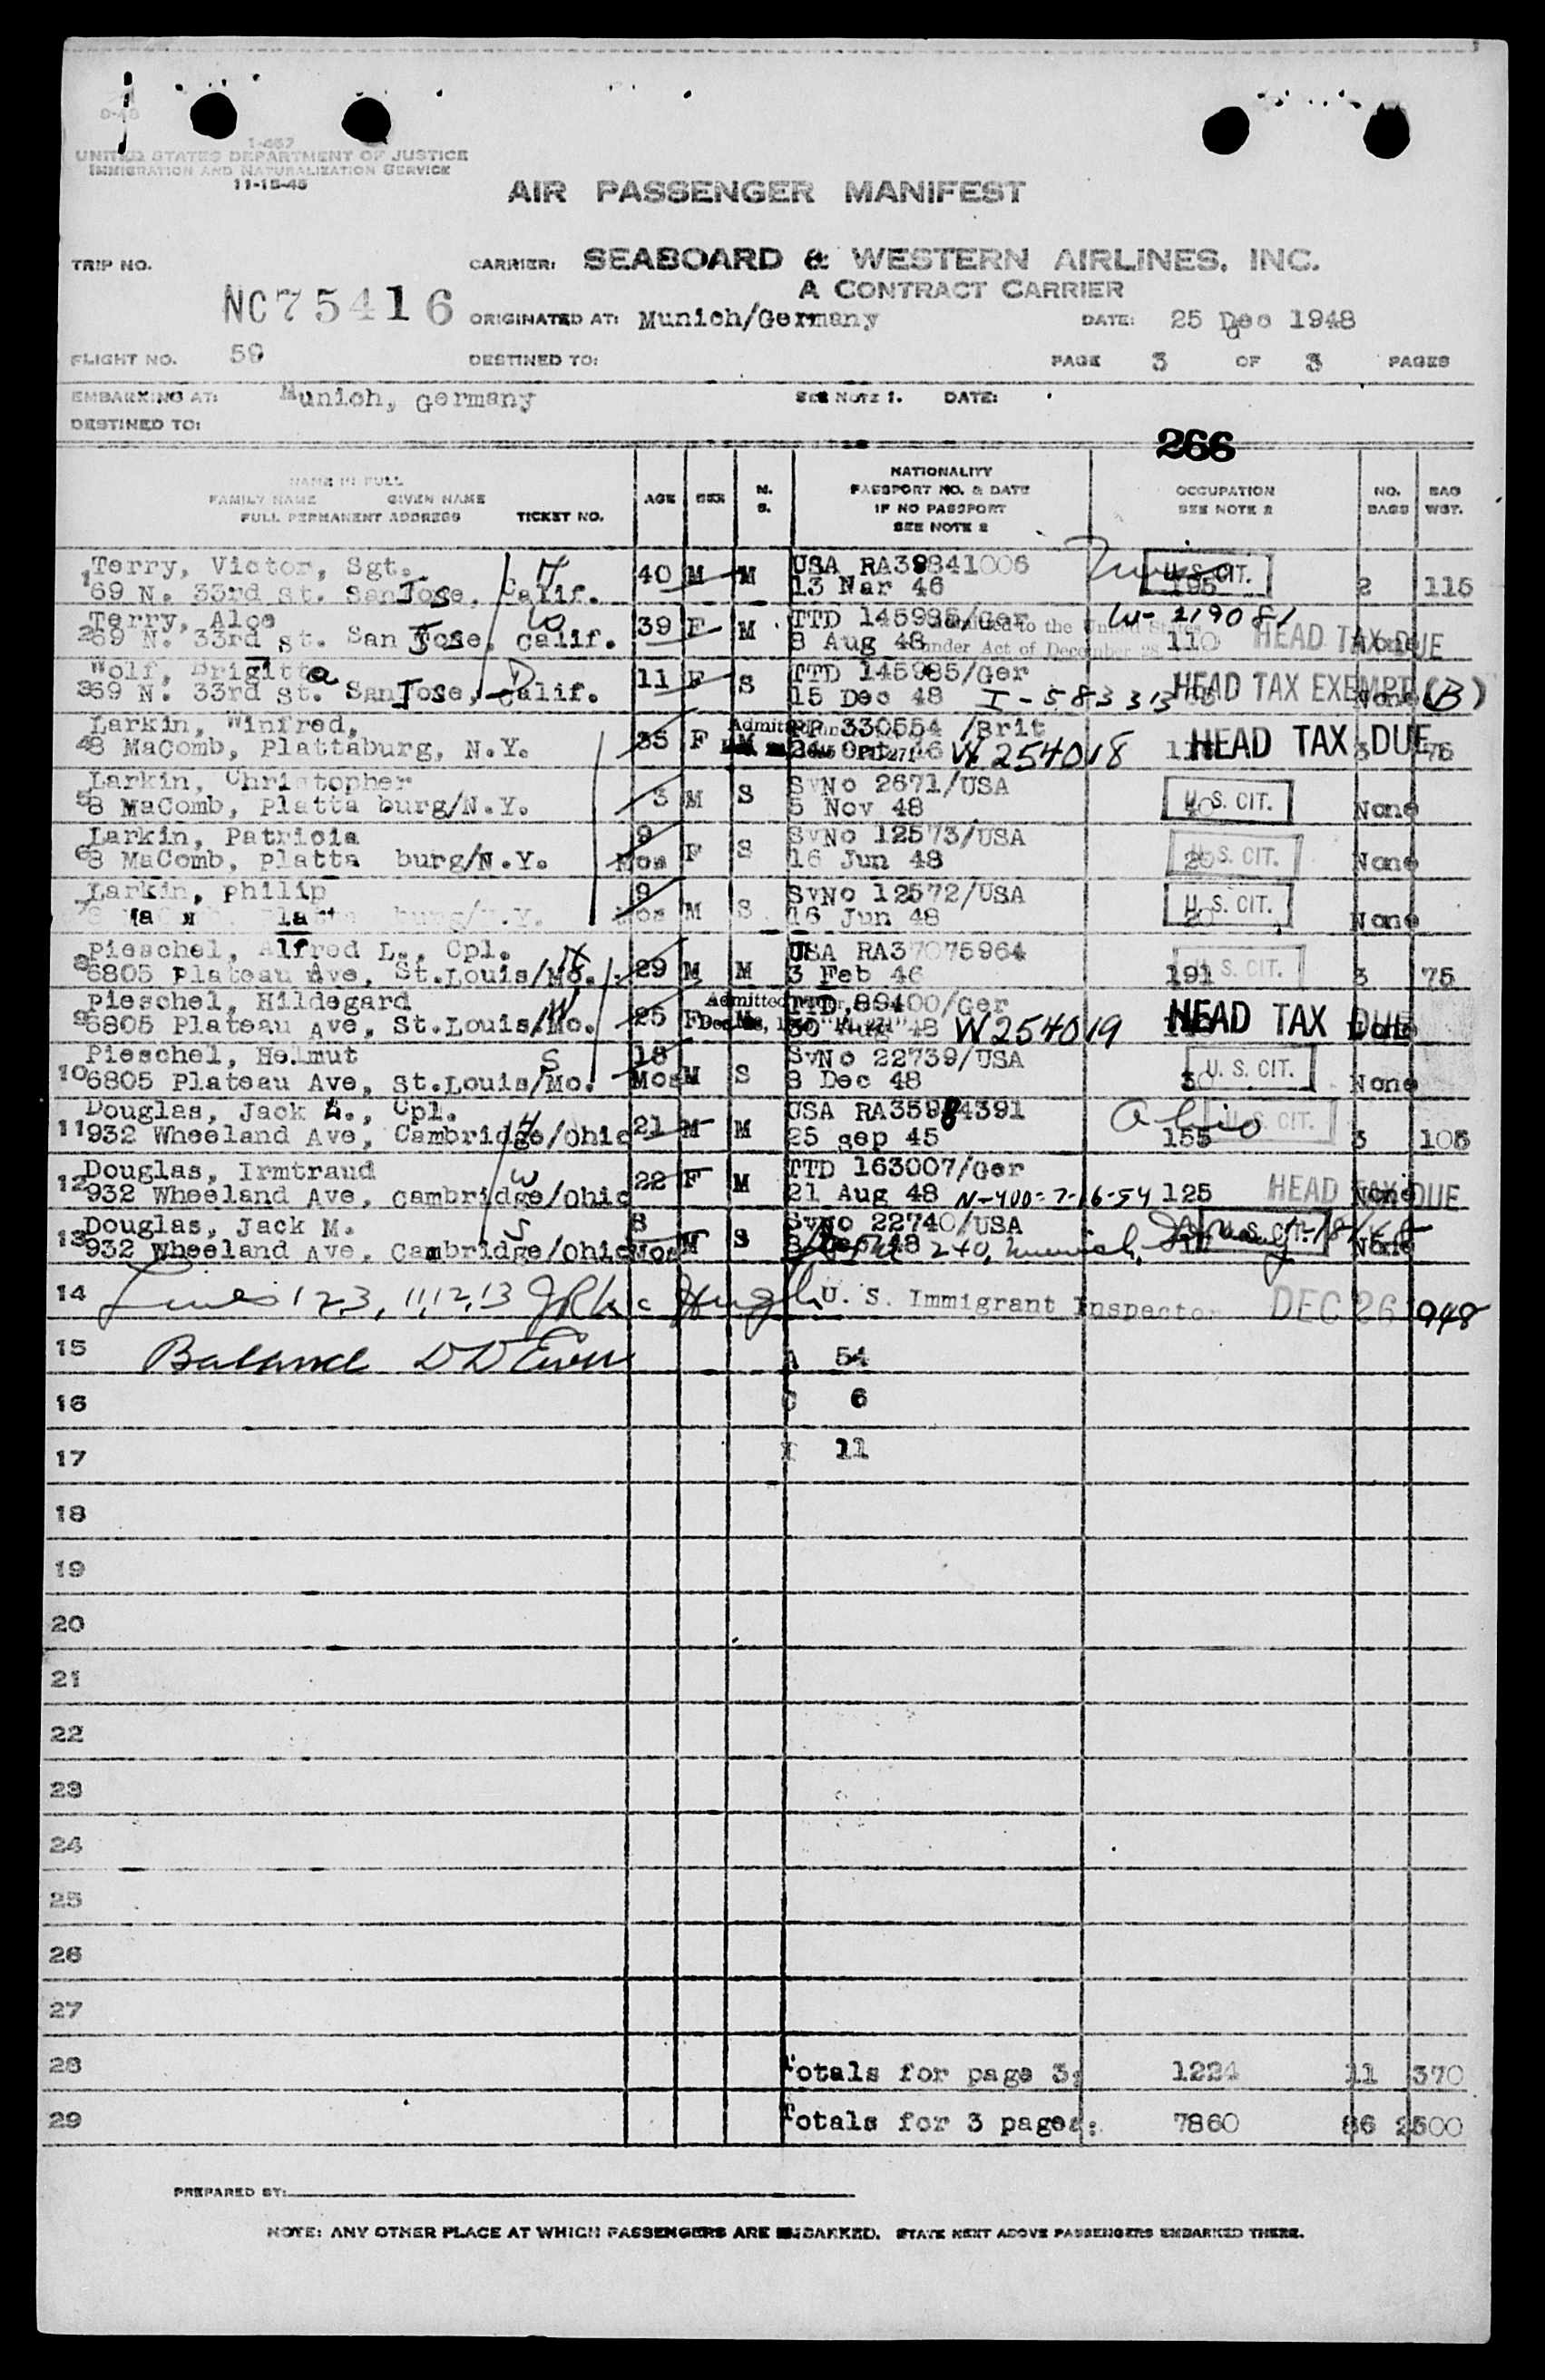 9-48
I-457
UNITED STATES DEPARTMENT OF JUSTICE
IMMIGRATION AND NATURALIZATION SERVICE
11-15-45
AIR PASSENGER MANIFEST
TRIP NO. NC75416
CARRIER: SEABOARD & WESTERN AIRLINES, INC.
A CONTRACT CARRIER
ORIGINATED AT: Munich/Germany DATE: 25 Dec 1948
FLIGHT NO. 59 DESTINED TO: PAGE 3 OF 3 PAGES
EMBARKING AT: Munich, Germany SEE NOTE 1. DATE:
DESTINED TO:
266
NAME IN FULL
FAMILY NAME GIVEN NAME
FULL PERMANENT ADDRESS TICKET NO.
AGE SEX M. S.
NATIONALITY
PASSPORT NO. & DATE
IF NO PASSPORT
SEE NOTE 2
OCCUPATION
SEE NOTE 2
NO. BAGS
BAG WGT.
Terry, Victor, Sgt. H 40 M M USA RA39841006 U.S. CIT.
1 69 N. 33rd St. San Jose, Calif. 13 Mar 46 195 2 115
Terry, Aloe W 39 F M TTD 145985/Ger W-219081
2 69 N. 33rd St. San Jose, Calif. 8 Aug 48 Admitted to the United States under Act of December 28 110 HEAD TAX DUE None
Wolf, Brigitta D 11 F S TTD 145985/Ger HEAD TAX EXEMPT (B)
3 69 N. 33rd St. San Jose, Calif. 15 Dec 48 I-583313 None
Larkin, Winfred, 35 F M PP 330554 /Brit HEAD TAX DUE
4 8 MaComb, Plattaburg, N.Y. 46 W254018 3 75
Larkin, Christopher 3 M S SvNo 2671/USA U.S. CIT.
5 8 MaComb, Platta burg/N.Y. 5 Nov 48 40 None
Larkin, Patricia 9 F S SvNo 12573/USA U.S. CIT.
6 8 MaComb, Platta burg/N.Y. Mos 16 Jun 48 20 None
Larkin, Philip 9 M S SvNo 12572/USA U.S. CIT.
7 8 burg/N.Y. Mos 16 Jun 48 20 None
Pieschel, Alfred L., Cpl. H 29 M M USA RA37075964 U.S. CIT.
8 6805 Plateau Ave, St.Louis/Mo. 3 Feb 46 191 3 75
Pieschel, Hildegard W 25 F M TTD 89400/Ger HEAD TAX DUE
9 6805 Plateau Ave, St.Louis/Mo. 30 Aug 48 W254019 None
Pieschel, Helmut S 18 M S SvNo 22739/USA U.S. CIT.
10 6805 Plateau Ave, St.Louis/Mo. Mos 8 Dec 48 30 None
Douglas, Jack L., Cpl. H 21 M M USA RA35984391 Ohio U.S. CIT.
11 932 Wheeland Ave, Cambridge/Ohio 25 Sep 45 155 3 105
Douglas, Irmtraud W 22 F M TTD 163007/Ger
12 932 Wheeland Ave, Cambridge/Ohio 21 Aug 48 N-400-7-16-54 125 HEAD TAX DUE None
Douglas, Jack M. S 8 M S SvNo 22740/USA U.S. CIT.
13 932 Wheeland Ave, Cambridge/Ohio Mos 8 Dec 48 240, Munich, Germany None
14 Lines 1 2 3, 11, 12, 13 U. S. Immigrant Inspector DEC 26 1948
15 Balance A 54
16 C 6
17 I 11
18
19
20
21
22
23
24
25
26
27
28 Totals for page 3: 1224 11 370
29 Totals for 3 pages: 7860 86 2500
PREPARED BY:
NOTE: ANY OTHER PLACE AT WHICH PASSENGERS ARE EMBARKED. STATE NEXT ABOVE PASSENGERS EMBARKED THERE.